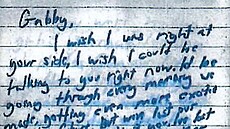 Gabby,
I wish I was right at
your side, I wish I could be
talking to you right now. Id be
going through every memory we
made, getting even more excited
but